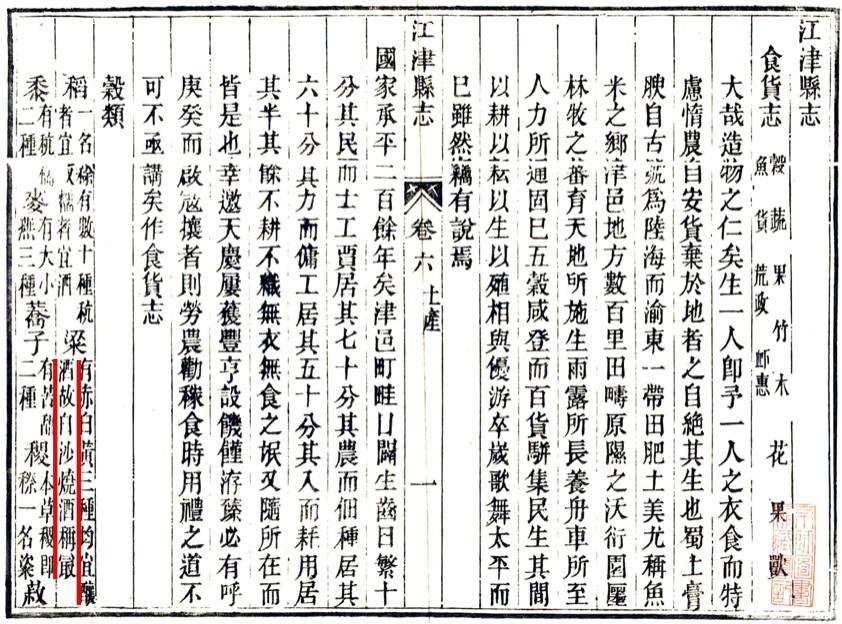 江津縣志
食貨志 穀 蔬 果 竹 木 花 果 獸
魚 貨 荒政
大哉造物之仁矣生一人卽予一人之衣食而特
慮惰農自安貨棄於地者之自絕其生也蜀土膏
腴自古號爲陸海而渝東一帶田肥土美尤稱魚
米之鄉津邑地方數百里田疇原隰之沃衍園廛
林牧之蕃育天地所施生雨露所長養舟車所至
人力所通固已五穀咸登而百貨駢集民生其間
以耕以耘以生以殖相與優游卒歲歌舞太平而
已雖然竊有說焉
江津縣志 卷六 土產 一
國家承平二百餘年矣津邑町畦日闢生齒日繁十
分其民而士工賈居其七十分其農而佃種居其
六十分其力而傭工居其五十分其入而耗用居
其半其餘不耕不織無衣無食之氓又隨所在而
皆是也幸邀天慶屢獲豐亨設饑饉洊臻必有呼
庚癸而啟寇攘者則勞農勸稼食時用禮之道不
可不亟講矣作食貨志
穀類
稻 一名稌有數十種秔者宜飯糯者宜酒 粱 有赤白黃三種均宜釀酒故白沙燒酒稱最
黍 有秔糯二種 麥 有大小燕三種 蕎子 有苦甜二種 稷 本草稷卽穄一名粢 菽